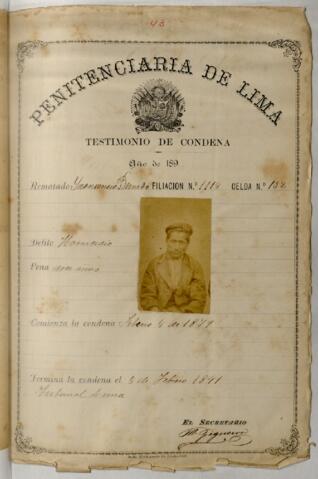 43
PENITENCIARIA DE LIMA
TESTIMONIO DE CONDENA
Año de 189
Rematado FILIACION N.º 111 CELDA N.º
Delito Homicidio
Pena años
Comienza la condena Febrero 4 de 1879
Termina la condena el 3 de Febrero 1891
Tribunal Lima
EL SECRETARIO